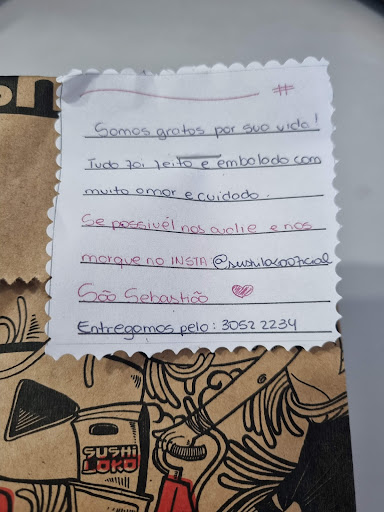 #
Somos gratos por sua vida!
Tudo foi feito e embalado com
muito amor e cuidado.
Se possivél nos avalie e nos
marque no INSTA @sushilokooficial
São Sebastião
Entregamos pelo: 3052 2234
SUSHI
LOKO